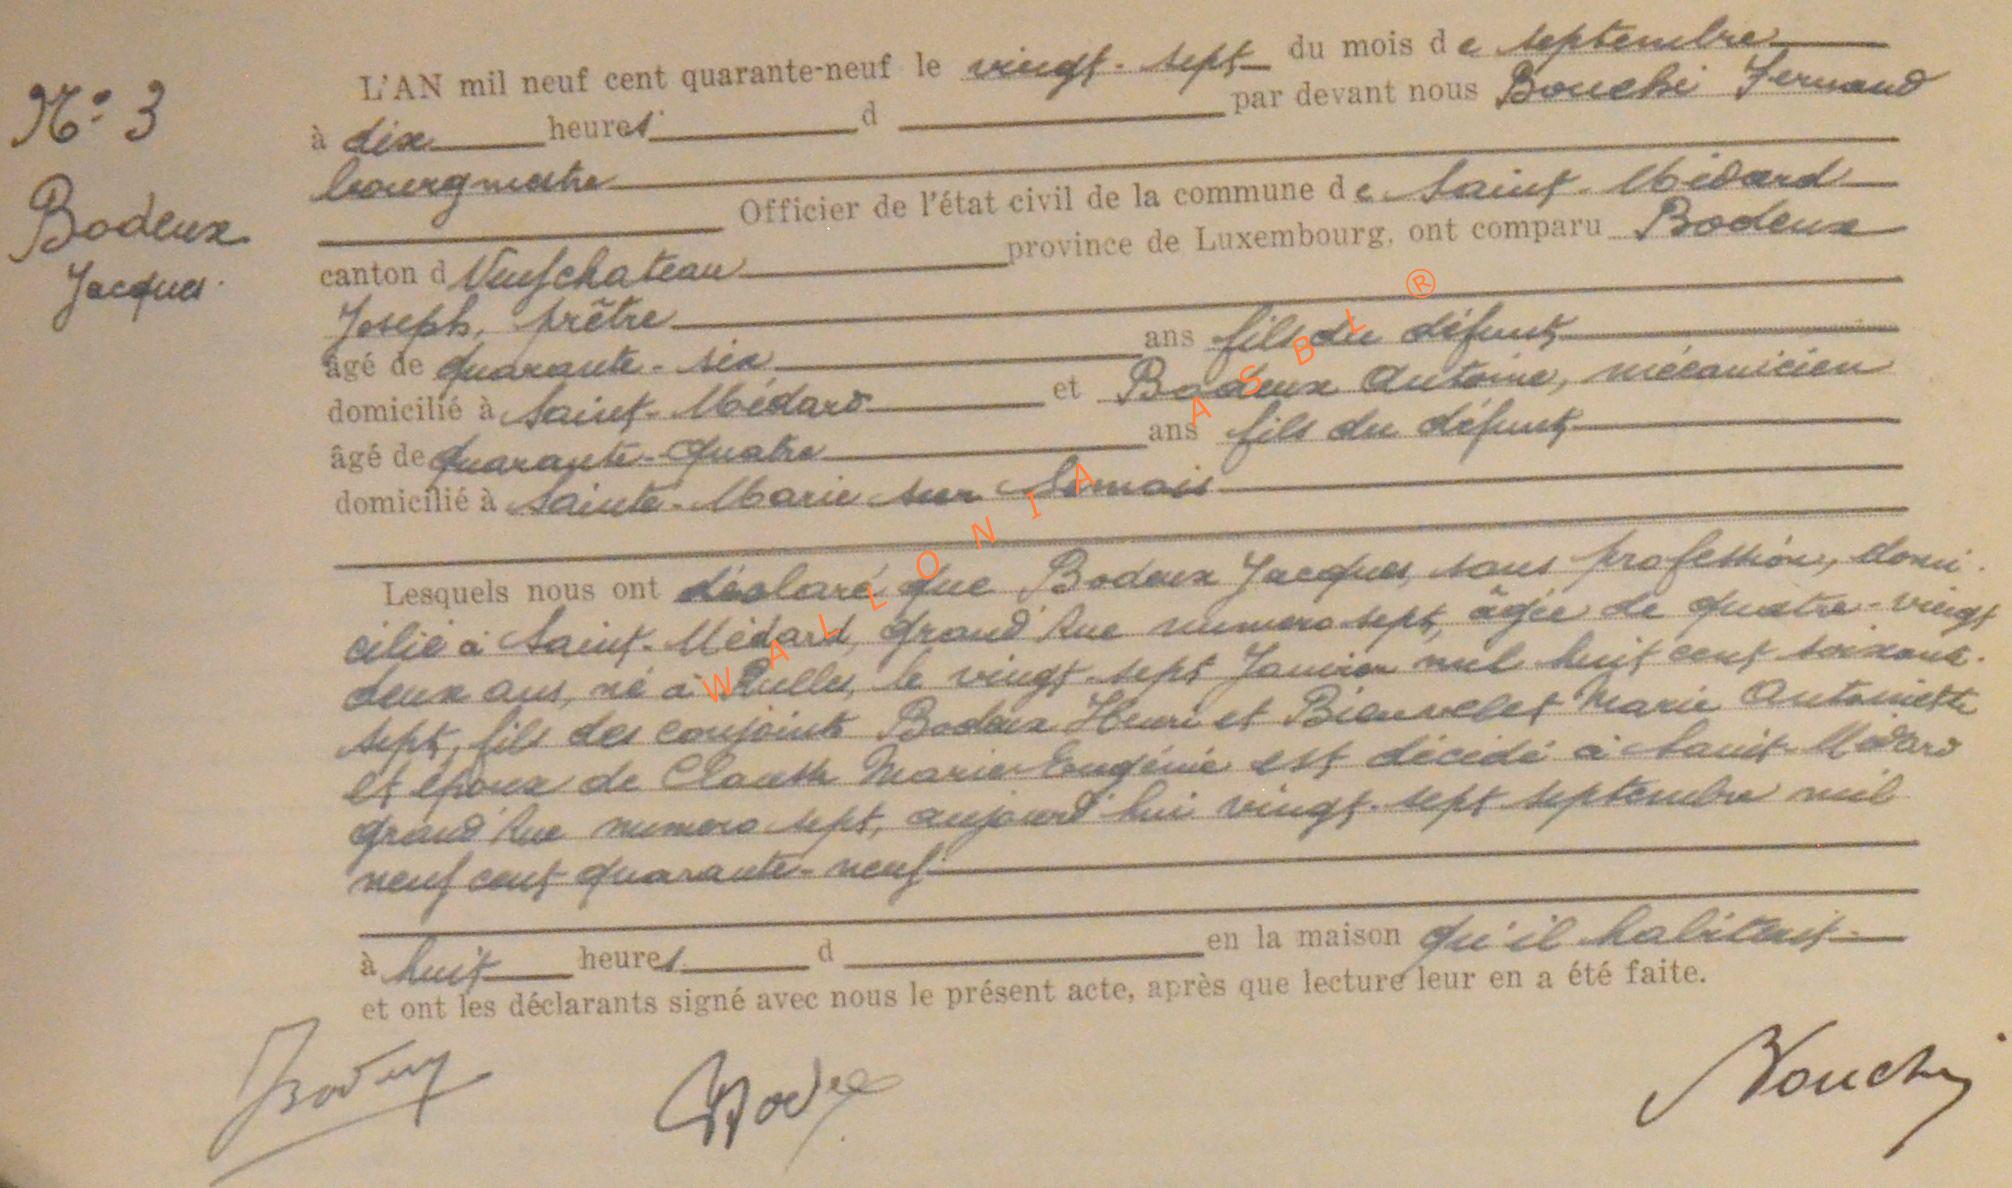 N° 3
Bodeux
Jacques
L'AN mil neuf cent quarante-neuf le vingt-sept du mois de septembre
à dix heures d par devant nous Bouché Fernand
bourgmestre
Officier de l'état civil de la commune de Saint-Médard
canton d Neufchateau province de Luxembourg, ont comparu Bodeux
Joseph, prêtre
âgé de quarante-six ans fils du défunt
domicilié à Saint-Médard et Bodeux Antoine, mécanicien
âgé de quarante-quatre ans fils du défunt
domicilié à Sainte-Marie sur Semois
Lesquels nous ont déclaré que Bodeux Jacques, sans profession, domi-
cilié à Saint-Médard, Grand'Rue numero sept, âgée de quatre-vingt
deux ans, né à Rulles, le vingt-sept Janvier mil huit cent soixant-
sept, fils des conjoints Bodeux Henri et Bienvelet Marie Antoinette
et époux de Marie Eugénie est décédé à Saint-Médard
grand'Rue numero sept, aujourd'hui vingt-sept septembre mil
neuf cent quarante-neuf
à huit heures d en la maison qu'il habitait
et ont les déclarants signé avec nous le présent acte, après que lecture leur en a été faite.
Bouché
WALLONIA ASBL ®